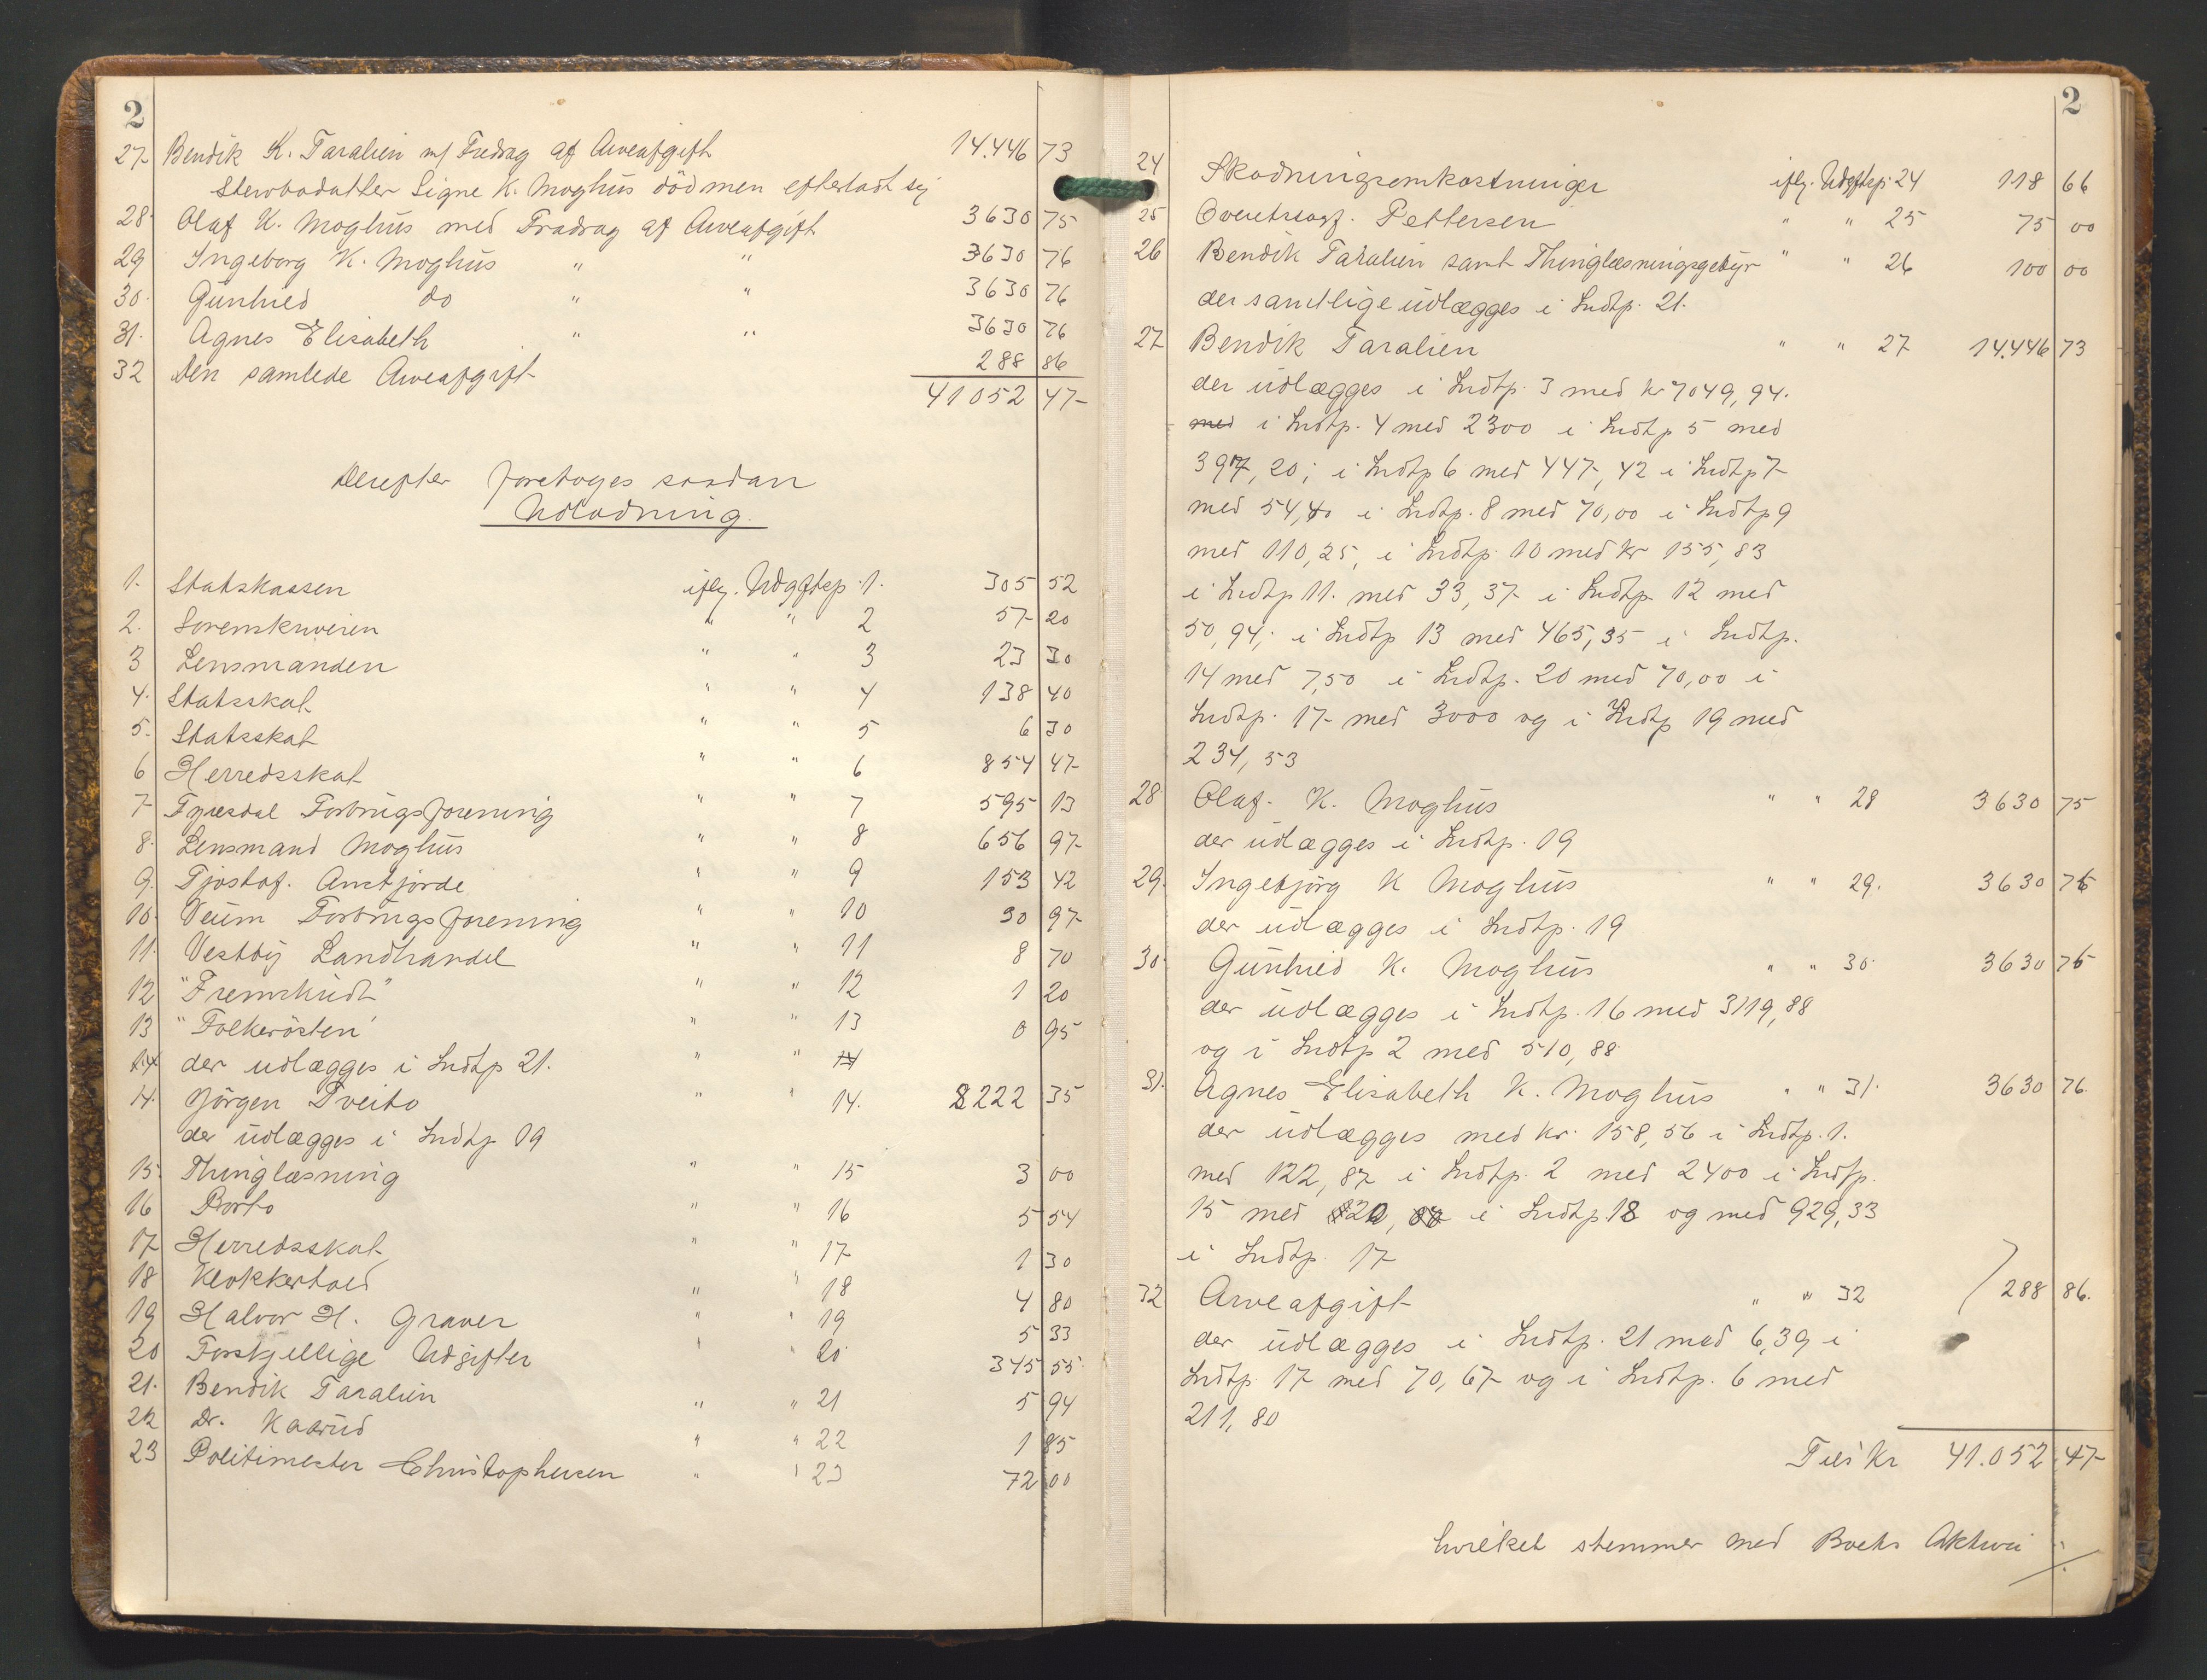 2
27 Bendik K. Taralien m/ Fradrag af Arveafgift 14.446 73
Stervbodatter Signe K. Moghus död men efterladt sig
28 Olaf K. Moghus med Fradrag af Arveafgift 3630 75
29 Ingeborg K. Moghus " " 3630 76
30. Gunhild do " " 3630 76
31. Agnes Elisabeth " " 3630 76
32 Den samlede Arveafgift 288 86
41052 47
Derefter foretoges saadan
Udlodning.
1. Statskassen iflg. Udgiftsp. 1. 305 52
2. Sorenskriveren " " 2 57 20
3 Lensmanden " " 3 23 30
4. Statsskat " " 4 138 40
5. Statsskat " " 5 6 30
6 Herredsskat " " 6 854 47
7 Fyresdal Forbrugsforening " " 7 595 13
8. Lensmand Moghus " " 8 656 97
9. Tjostof. Amtjorde " " 9 153 42
10. Veum Forbrugsforening " " 10 30 97
11. Vestby Landhandel " " 11 8 70
12 "Fremskridt" " " 12 1 20
13 "Folkerösten" " " 13 0 95
14 der udlægges i Indtp 21. " " 14
14. Jörgen Tveito " " 14. 8222 35
der udlægges i Indtp 19
15. Thinglæsning " " 15 3 00
16 Porto " " 16 5 54
17 Herredsskat " " 17 1 30
18 Klokkertold " 18 4 80
19 Halvor H. Graver " " 19 5 33
20 Forskjellige Udgifter " " 20 345 55
21. Bendik Taralien " " 21 5 94
22 Dr. Kabrud " " 22 1 85
23 Politimester Christophersen " " 23 72 00
2
24 Skodningsomkostninger iflg. Udgftsp. 24 118 66
25 Overetssagf. Pettersen " " 25 75 00
26 Bendik Taralien samt Thinglæsningsgebyr " " 26 100 00
der samtlige udlægges i Indtp. 21.
27 Bendik Taralien " " 27 14.446 73
der udlægges i Indtp. 3 med kr 7049,94.
med i Indtp. 4 med 2300 i Indtp 5 med
397,20; i Indtp 6 med 447,42 i Indtp 7
med 54,40 i Indtp. 8 med 70,00 i Indtp 9
med 110,25, i Indtp 10 med kr 155,83
i Indtp 11. med 33,37 i Indtp 12 med
50,94; i Indtp 13 med 465,35 i Indtp.
14 med 7,50 i Indtp. 20 med 70,00 i
Indtp. 17 med 3000 og i Indtp 19 med
234,53
28 Olaf. K. Moghus " " 28 3630 75
der udlægges i Indtp. 19
29. Ingebjörg K Moghus " " 29. 3630 76
der udlægges i Indtp. 19
30. Gunhild K. Moghus " " 30. 3630 76
der udlægges i Indtp. 16 med 3119,88
og i Indtp 2 med 510,88
31. Agnes Elisabeth K. Moghus " " 31. 3630 76.
der udlægges med kr. 158,56 i Indtp. 1.
med 122,87 i Indtp. 2 med 2400 i Indtp.
15 med 20, i Indtp 18 og med 929,33
i Indtp. 17
32 Arveafgift " " 32 288 86.
der udlægges i Indtp. 21 med 6,39 i
Indtp 17 med 70,67 og i Indtp. 6 med
211,80
Tils Kr 41.052 47
hvilket stemmer med Boets Aktiva